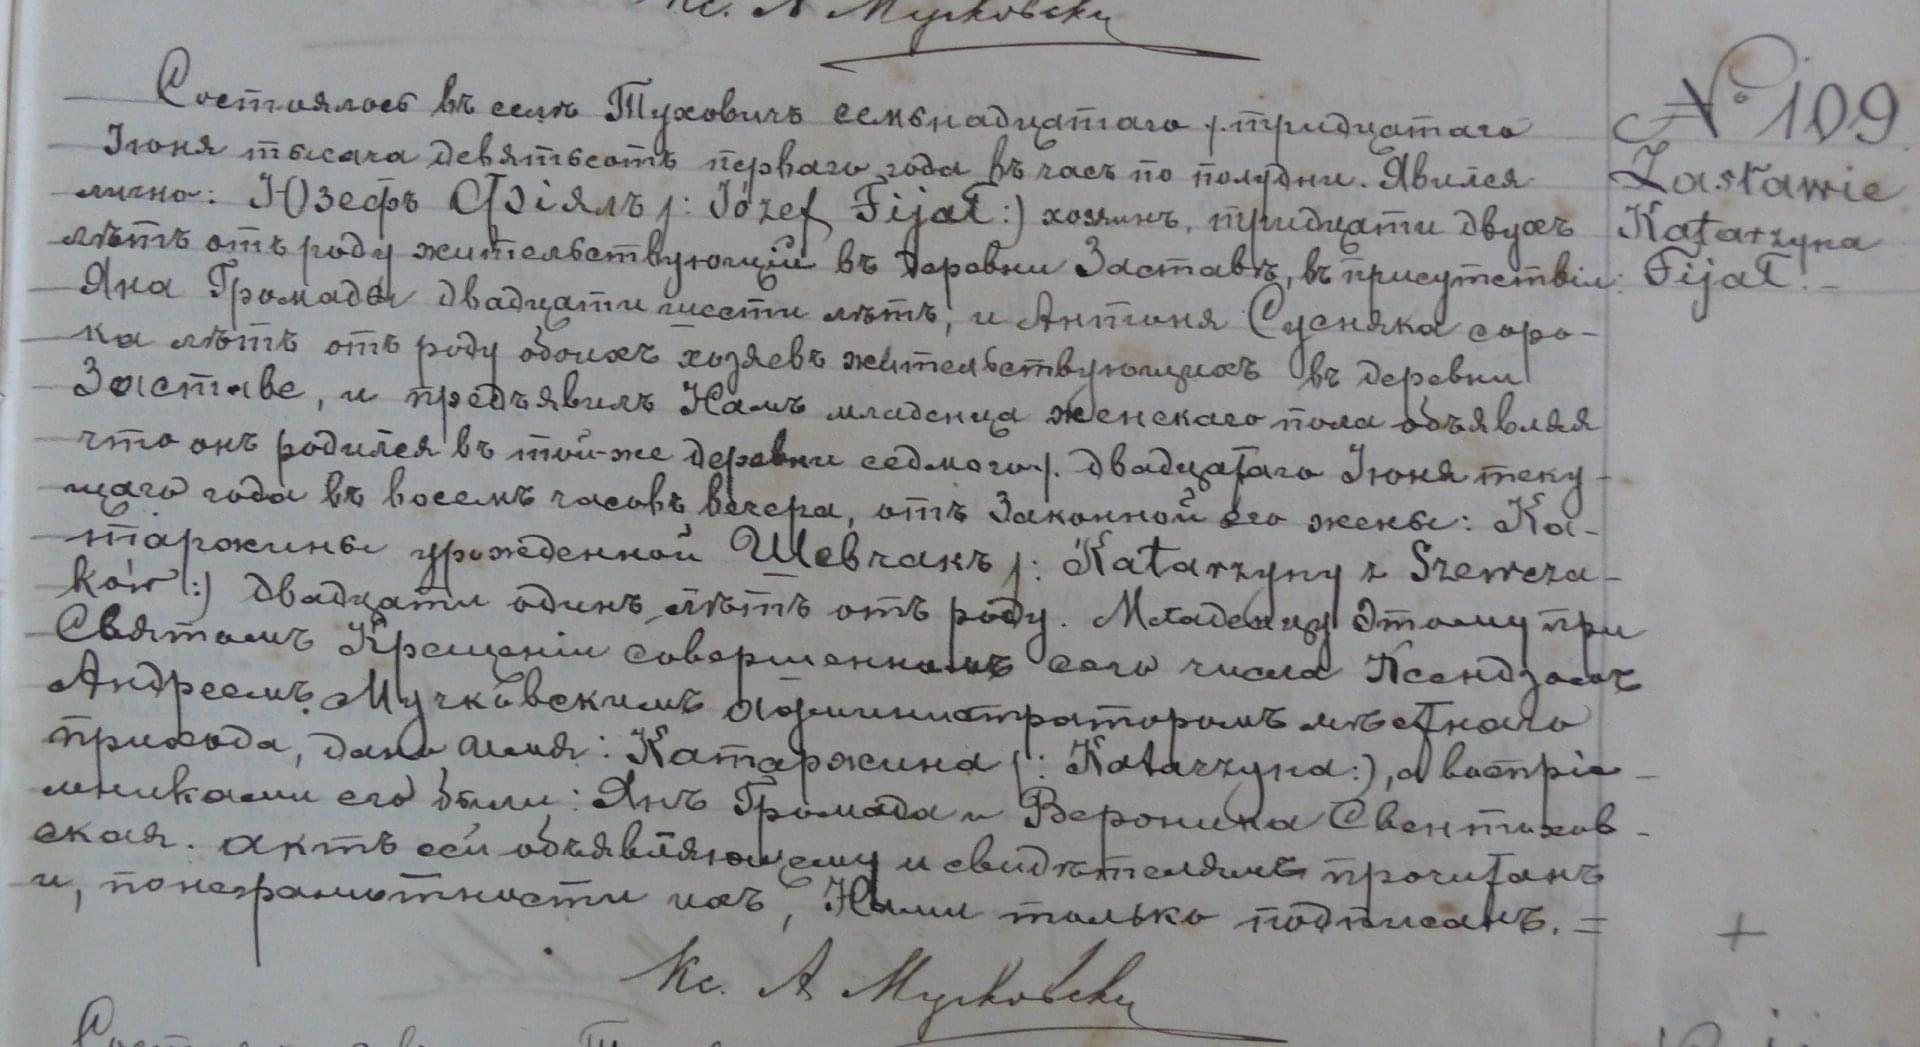 Кс. А Мучковски
Состоялось въ селѣ Туховичъ семьнадцатаго /. тридцатаго
Іюня тысяча девятьсотъ перваго года въ часъ по полудни. Явился
лично: Юзефъ Фіялъ /: Józef Fijał :/ хозяинъ, тридцати двухъ
лѣтъ отъ роду жительствующій въ деревни Заставѣ, въ присутствіи:
Яна Громады двадцати шести лѣтъ, и Антоня Сусняка соро-
ка лѣтъ отъ роду обоихъ хозяевъ жительствующихъ въ деревни
Заставе, и предъявилъ Намъ младенца женскаго пола объявляя
что онъ родился въ той-же деревни седмого /. двадцатаго Іюня теку-
щаго года въ восемь часовъ вечера, отъ Законной его жены: Ка-
таржины урожденной Шевчакъ /: Katarzyny z Szewcza-
ków :/ двадцати одинъ лѣтъ отъ роду. Младенцу Этому при
Святомъ Крещеніи совершенномъ сего числа Ксендзомъ
Андреемъ Мучковскимъ администраторомъ мѣстнаго
прихода, дано имя: Катаржина /: Katarzyna :/, а воспріе-
мниками его были: Янъ Громада и Вероника Свентохов-
ская. актъ сей объявляющему и свидѣтелямъ прочитанъ
и, понеграмотности ихъ, Нами только подписанъ. =
Кс. А Мучковски
№ 109
Zastawie
Katarzyna
Fijał. -
+